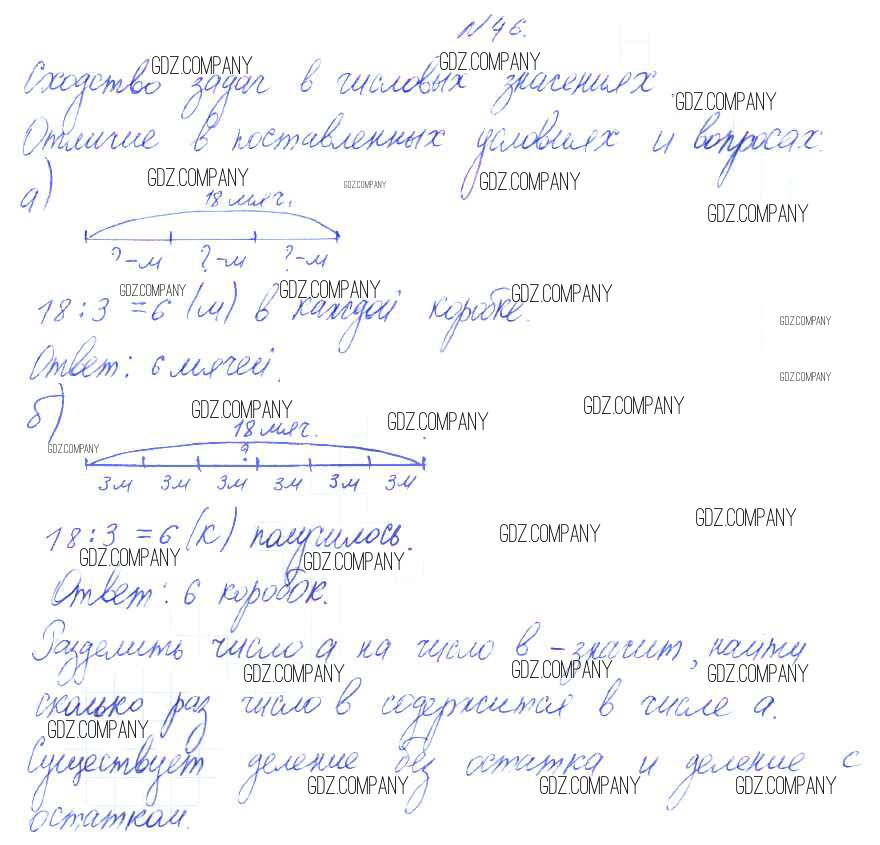 №46.
Сходство задач в числовых значениях.
Отличие в поставленных условиях и вопросах.
а)
18 мяч.
?-м ?-м ?-м
18:3=6 (м) в каждой коробке.
Ответ: 6 мячей.
б)
18 мяч.
?
3м 3м 3м 3м 3м 3м
18:3=6 (к) получилось.
Ответ: 6 коробок.
Разделить число а на число в - значит, найти
сколько раз число в содержится в числе а.
Существует деление без остатка и деление с
остатком.
GDZ.COMPANY GDZ.COMPANY
GDZ.COMPANY
GDZ.COMPANY GDZ.COMPANY GDZ.COMPANY
GDZ.COMPANY
GDZ.COMPANY GDZ.COMPANY GDZ.COMPANY
GDZ.COMPANY
GDZ.COMPANY
GDZ.COMPANY GDZ.COMPANY GDZ.COMPANY
GDZ.COMPANY
GDZ.COMPANY GDZ.COMPANY
GDZ.COMPANY GDZ.COMPANY
GDZ.COMPANY GDZ.COMPANY GDZ.COMPANY
GDZ.COMPANY
GDZ.COMPANY GDZ.COMPANY GDZ.COMPANY